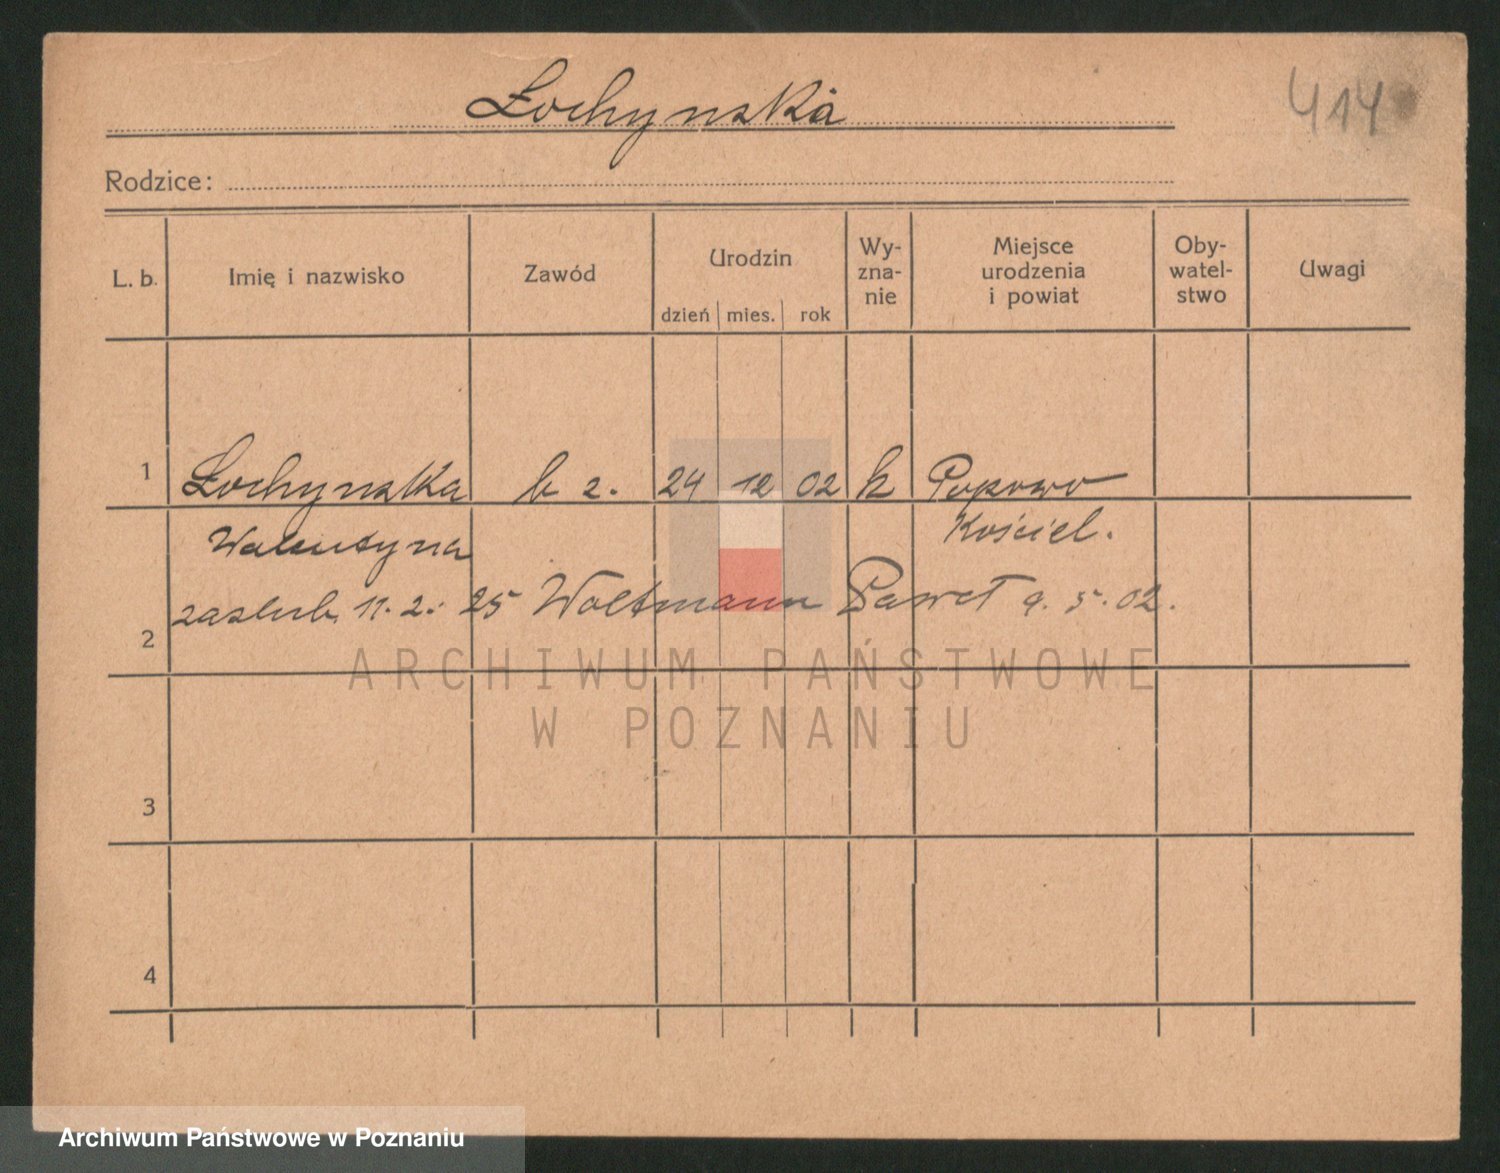 Łochynska
414
Rodzice:
L. b. Imię i nazwisko Zawód Urodzin dzień mies. rok Wy-zna-nie Miejsce urodzenia i powiat Oby-watel-stwo Uwagi
1 Łochynska b z. 24 12 02 k Popowo
Walentyna Kościel.
zaślub. 11. 2. 25 Woltmann Paweł 9. 5. 02.
2
ARCHIWUM PAŃSTWOWE
W POZNANIU
3
4
Archiwum Państwowe w Poznaniu